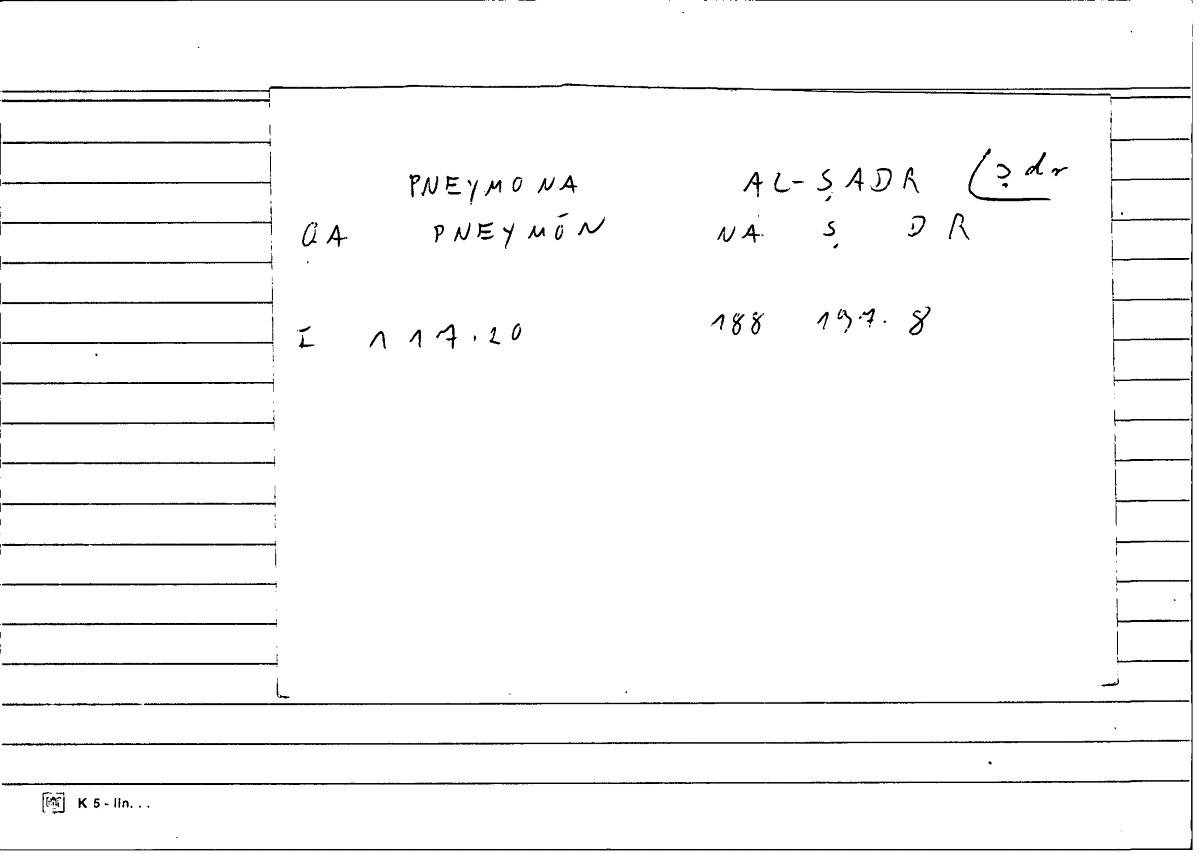 PNEYMONA AL-ṢADR (ṣdr
QA PNEYMŌN NA Ṣ DR
I 117.20 188 197.8
K 5 - lin. . .